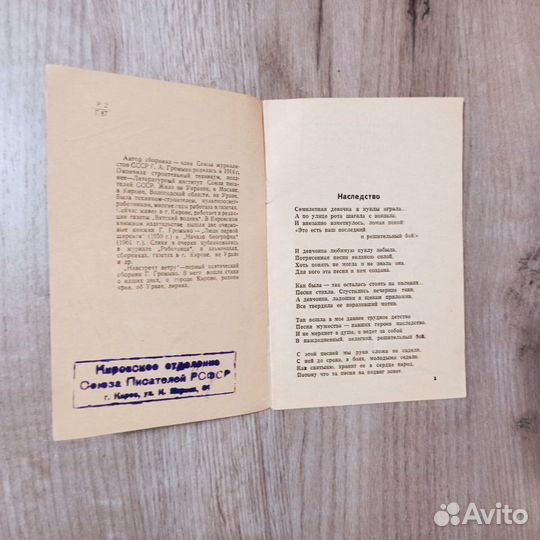 Р 2
Г 87
Автор сборника — член Союза журнали-
стов СССР Г. А. Громыко родилась в 1914 г.
Окончила строительный техникум, позд-
нее — Литературный институт Союза писа-
телей СССР. Жила на Украине, в Москве,
в Кирове, Вологодской области, на Урале,
была техником-строителем, культпросвет-
работником, многие годы работала в газетах.
Сейчас живет в г. Кирове, работает в редак-
ции газеты „Вятский водник". В Кировском
книжном издательстве вышли две очерко-
вые книжки Г. Громыко — „Люди первой
шеренги" (1959 г.) и „Начало биографии"
(1961 г.). Стихи и очерки публиковались
в журнале „Работница", в альманахах,
сборниках, газетах в г. Кирове, на Урале
и др.
„Навстречу ветру" — первый поэтический
сборник Г. Громыко. В него вошли стихи
о наших днях, о городе Кирове, родном
крае, об Урале, лирика.
Кировское отделение
Союза Писателей РСФСР
г. Киров, ул. К. Маркса,
Наследство
Семилетняя девочка в куклы играла.
А по улице рота шагала с вокзала,
И внезапно взметнулось, ломая покой:
«Это есть наш последний
и решительный бой!»
И девчонка любимую куклу забыла.
Потрясенная песни великою силой.
Хоть понять не могла и не знала она,
Для кого эта песня и кем создана.
Как была — так осталась стоять на коленях...
Песня стихла. Сгустились вечерние тени,
А девчонка, ладошки к щекам приложив,
Все твердила ее поразивший мотив.
Так вошла в мое давнее трудное детство
Песня мужества — павших героев наследство.
И не меркнет в душе, и ведет за собой
В каждодневный, нелегкий, решительный бой.
С этой песней мы руки сложа не сидели.
С ней до срока, в боях, молодыми седели.
Как святыню, хранит ее в сердце народ,
Потому что та песня на подвиг зовет.
3
Avito